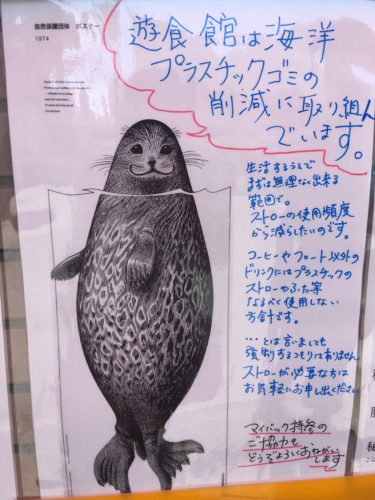 自然保護団体 ポスター
1974
遊食館は海洋
プラスチックゴミの
削減に取り組ん
でいます。
生活するうえで
まずは無理なく出来る
範囲で。
ストローの使用頻度
から減らしたいのです。
コーヒーやフロート以外の
ドリンクにはプラスチックの
ストローやふた等
なるべく使用しない
方針です。
…とは言いましても
強制するつもりはありません
ストローが必要な方は
お気軽にお申し出ください
マイバック持参の
ご協力も
どうぞよろしくおねがい
します